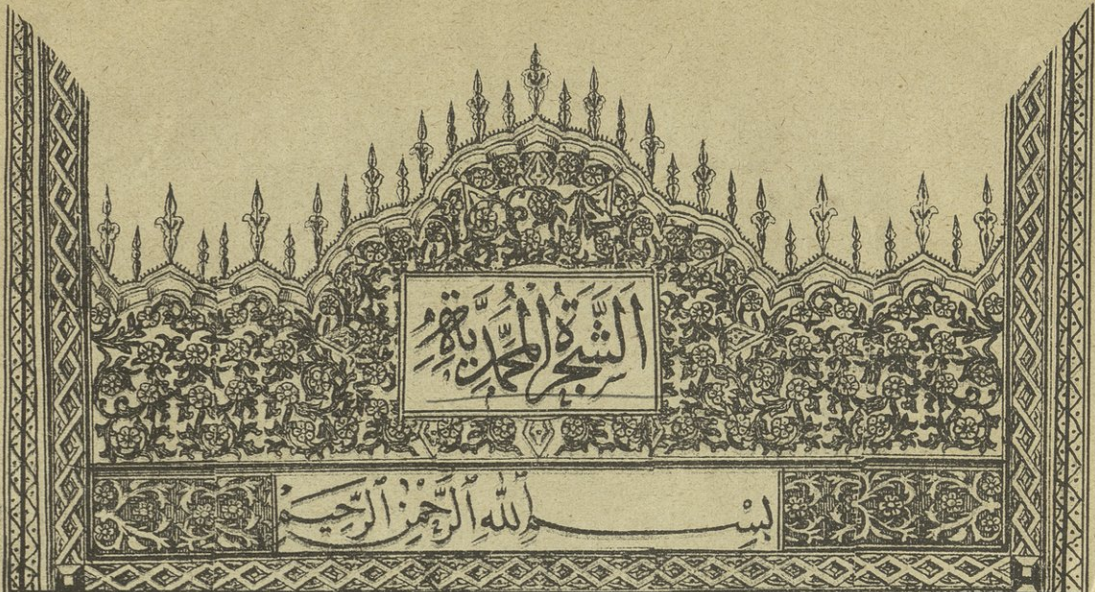 اَلشَّجَرَةُ الْمُحَمَّدِيَّةُ
بِسْمِ اللهِ الرَّحْمٰنِ الرَّحِيْمِ